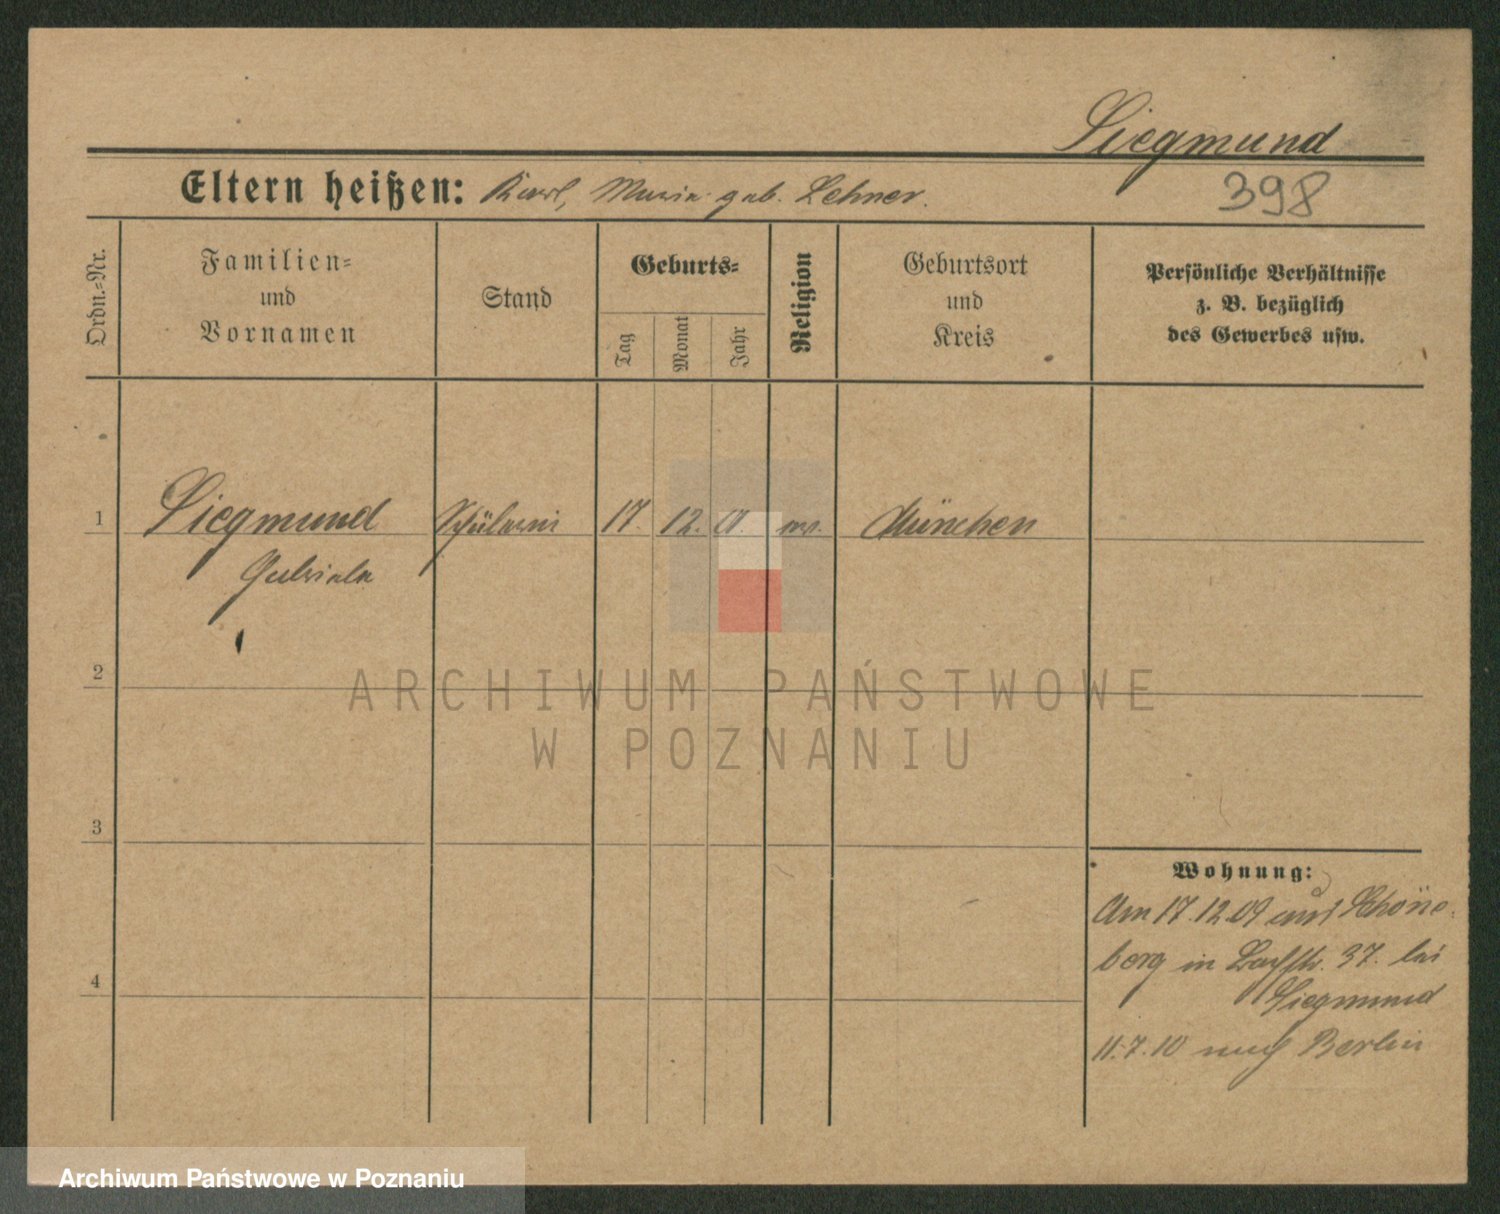 Siegmund
Eltern heißen: Karl, Maria geb. Lehner.
398
Ordn.-Nr.
Familien-
und
Vornamen
Stand
Geburts-
Tag
Monat
Jahr
Religion
Geburtsort
und
Kreis
Persönliche Verhältnisse
z. B. bezüglich
des Gewerbes usw.
1 Siegmund Schülerin 17. 12. München
Gabriele
2
3
4
Wohnung:
Am 17.12.09 aus Schöne-
berg in 37. bei
Siegmund
11.7.10 nach Berlin
ARCHIWUM PAŃSTWOWE
W POZNANIU
Archiwum Państwowe w Poznaniu